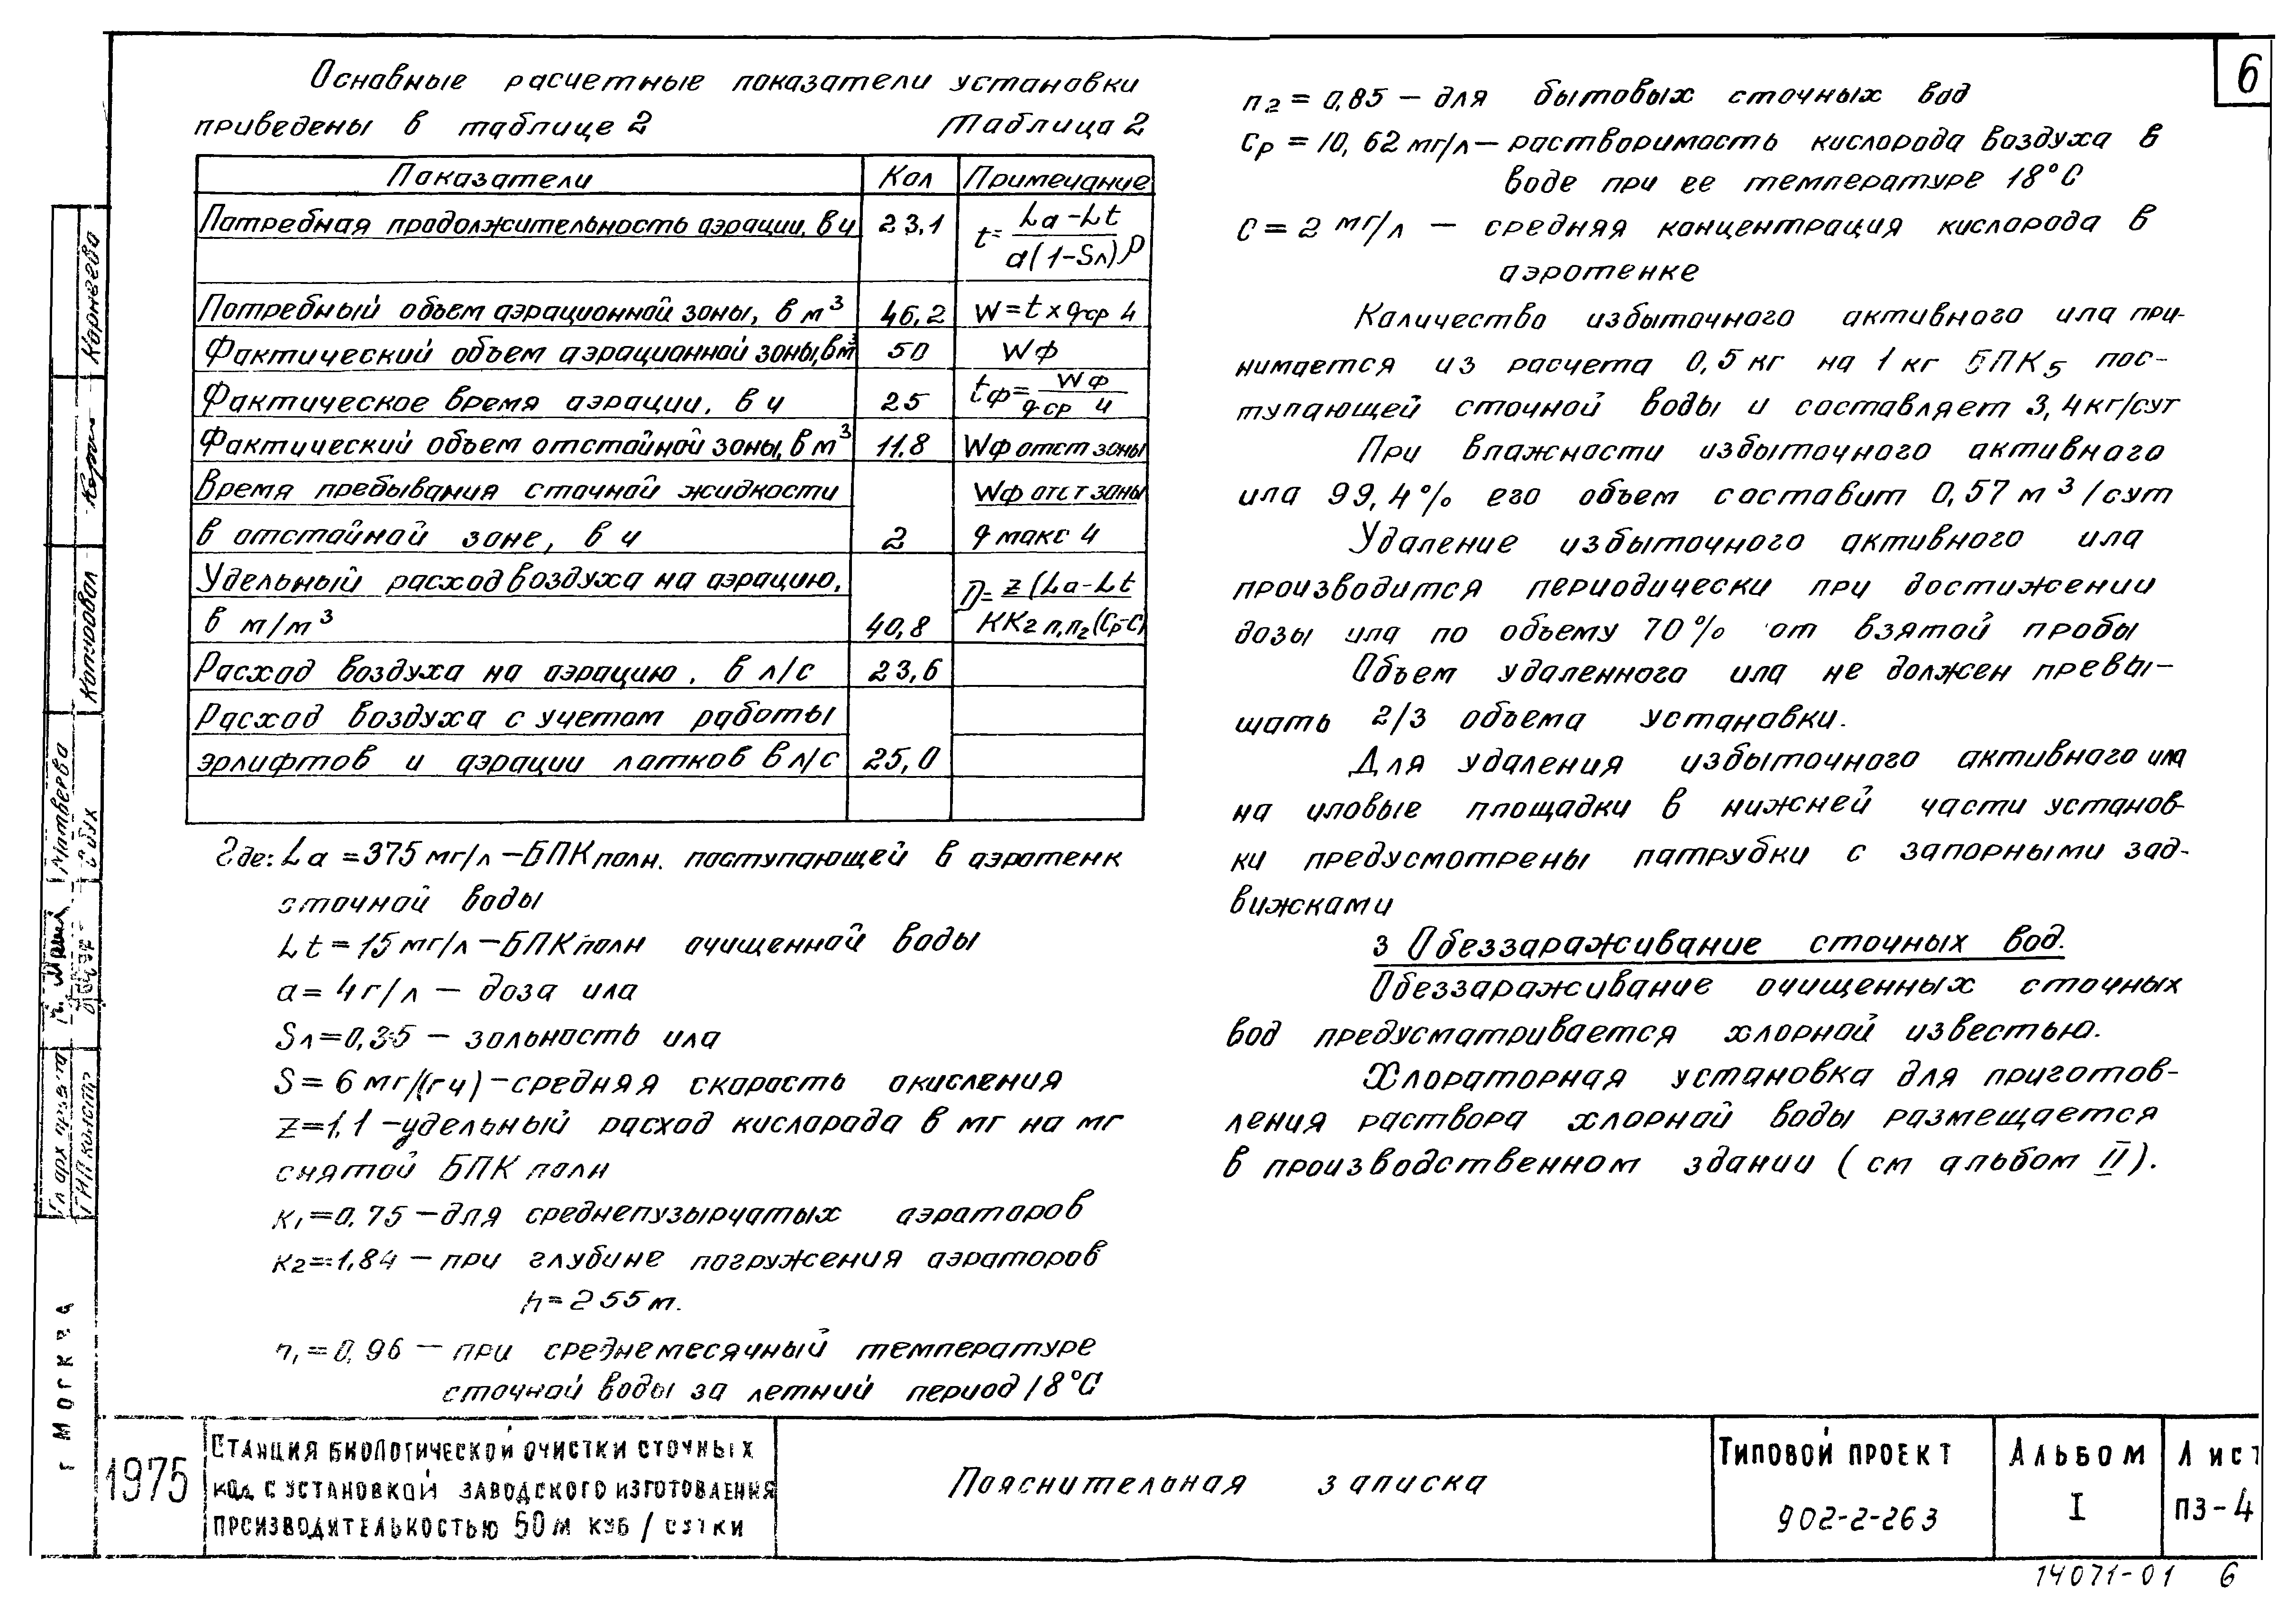 6
Основные расчетные показатели установки
приведены в таблице 2 Таблица 2
Показатели Кол Примечание
Потребная продолжительность аэрации, в ч 23,1 t= La-Lt / a(1-Sл)ρ
Потребный объем аэрационной зоны, в м³ 46,2 W=t×qср ч
Фактический объем аэрационной зоны, в м³ 50 Wф
Фактическое время аэрации, в ч 25 tф= Wф / qср ч
Фактический объем отстойной зоны, в м³ 11.8 Wф отст зоны
Время пребывания сточной жидкости Wф отст зоны
в отстойной зоне, в ч 2 q макс ч
Удельный расход воздуха на аэрацию, D= z(La-Lt
в м/м³ 40,8 KK2 n,n2(Cp-C)
Расход воздуха на аэрацию, в л/с 23,6
Расход воздуха с учетом работы
эрлифтов и аэрации лотков в л/с 25,0
Где: La =375 мг/л –БПК полн. поступающей в аэротенк
сточной воды
Lt = 15 мг/л –БПК полн очищенной воды
a= 4г/л – доза ила
Sл=0,35 – зольность ила
S= 6 мг/(г ч) –средняя скорость окисления
Z=1,1 –удельный расход кислорода в мг на мг
снятой БПК полн
K₁=0,75 –для среднепузырчатых аэраторов
K2=1,84 – при глубине погружения аэраторов
h=2 55м.
n₁=0,96 – при среднемесячный температуре
сточной воды за летний период 18°С
n2=0,85 – для бытовых сточных вод
Cр = 10, 62 мг/л – растворимость кислорода воздуха в
воде при ее температуре 18°С
C = 2 мг/л – средняя концентрация кислорода в
аэротенке
Количество избыточного активного ила при-
нимается из расчета 0,5 кг на 1 кг БПК5 пос-
тупающей сточной воды и составляет 3,4кг/сут
При влажности избыточного активного
ила 99,4% его объем составит 0,57 м³/сут
Удаление избыточного активного ила
производится периодически при достижении
дозы ила по объему 70% от взятой пробы
Объем удаленного ила не должен превы-
шать 2/3 объема установки.
Для удаления избыточного активного ила
на иловые площадки в нижней части установ-
ки предусмотрены патрубки с запорными зад-
вижками
3 Обеззараживание сточных вод.
Обеззараживание очищенных сточных
вод предусматривается хлорной известью.
Хлораторная установка для приготов-
ления раствора хлорной воды размещается
в производственном здании ( см альбом II ).
Корнеева
Копировал
Матвеева
Гл арх проекта
ГИП констр
г Москва
1975
Станция биологической очистки сточных
вод с установкой заводского изготовления
производительностью 50м куб / сутки
Пояснительная записка
Типовой проект
902-2-263
Альбом
I
Лист
ПЗ-4
14071-01 6